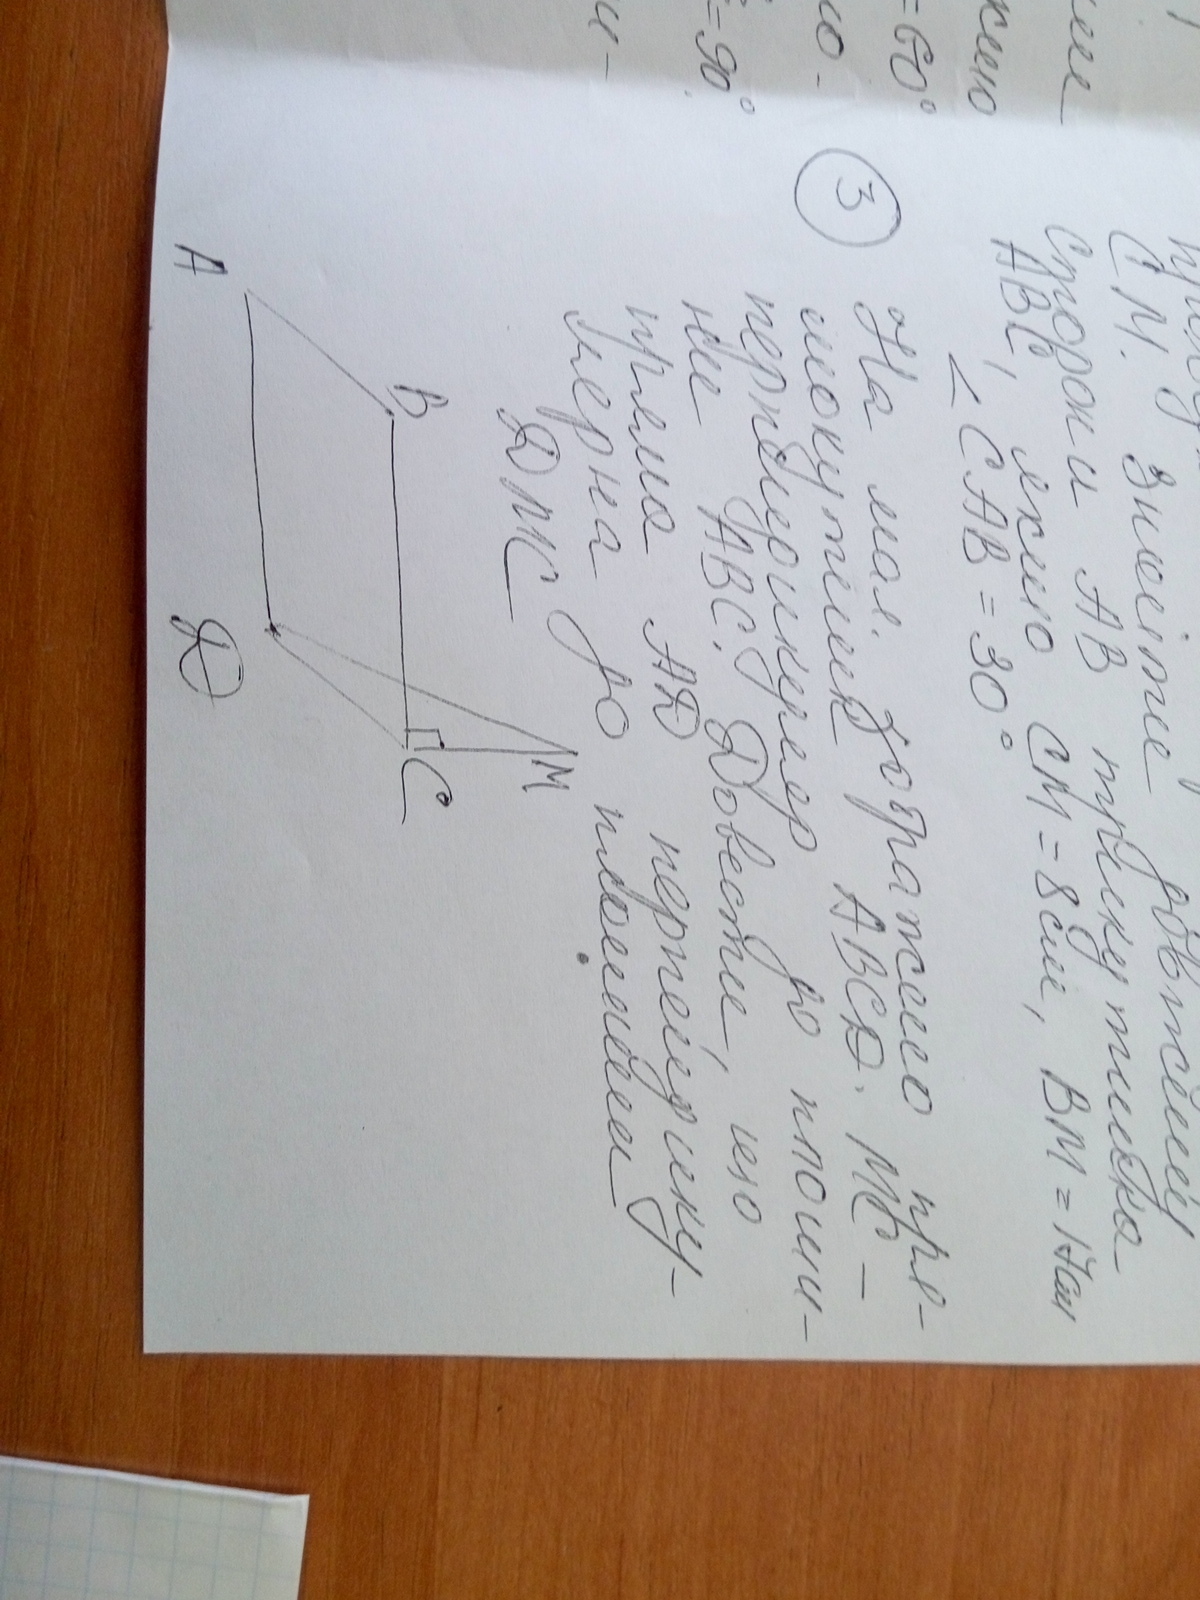 СМ. Знайте довжину
сторони АВ трикутника
АВС, якщо СМ = 8см, ВМ = 17см
< САВ = 30°
= 60°
= 90°
3
На мал. зображено пря-
мокутник АВСД. МС -
перпендикуляр до площи-
ни АВС. Довести, що
пряма АД перпендику-
лярна до площини
ДМС
М
В
С
А
Д